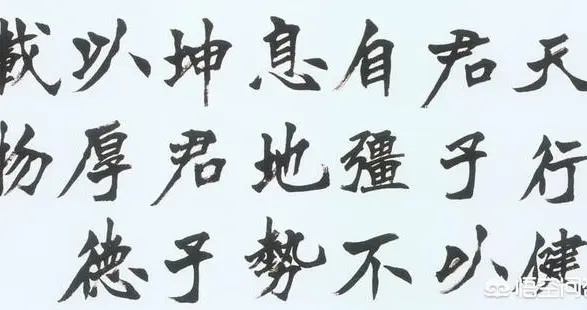 天行健
君子以
自彊不
息地勢
坤君子
以厚德
載物
悟空问